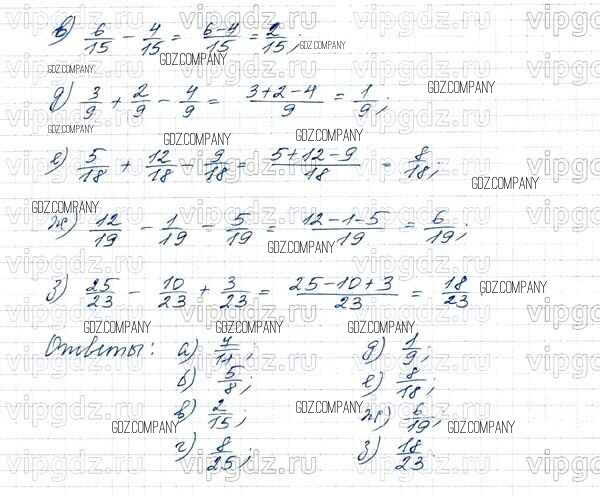 в) 6/15 - 4/15 = 6-4/15 = 2/15;
д) 3/9 + 2/9 - 4/9 = 3+2-4/9 = 1/9;
е) 5/18 + 12/18 - 9/18 = 5+12-9/18 = 8/18;
ж) 12/19 - 1/19 - 5/19 = 12-1-5/19 = 6/19;
з) 25/23 - 10/23 + 3/23 = 25-10+3/23 = 18/23.
Ответы: а) 4/11; д) 1/9;
б) 5/8; е) 8/18;
в) 2/15; ж) 6/19;
г) 8/25; з) 18/23.
vipgdz.ru
GDZ.COMPANY